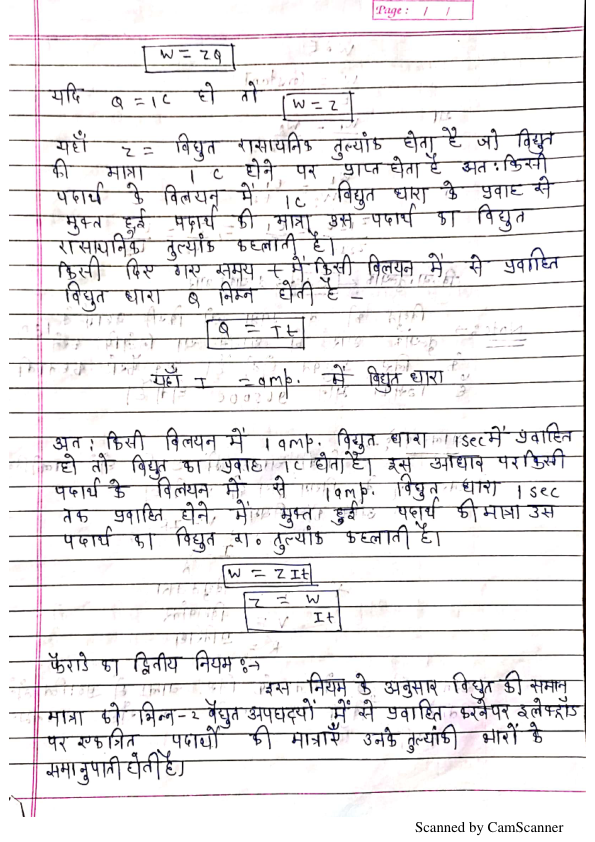 Page: / /
W = ZQ
यदि Q = 1C हो तो W = Z
यहाँ Z = विद्युत रासायनिक तुल्यांक होता है जो विद्युत
की मात्रा 1C होने पर प्राप्त होता है अत: किसी
पदार्थ के विलयन में 1C विद्युत धारा के प्रवाह से
मुक्त हुई पदार्थ की मात्रा उस पदार्थ का विद्युत
रासायनिक तुल्यांक कहलाती है।
किसी दिए गए समय t में किसी विलयन में से प्रवाहित
विद्युत धारा Q निम्न होती है -
Q = It
यहाँ I = amp. में विद्युत धारा
अत: किसी विलयन में 1 amp. विद्युत धारा 1 sec में प्रवाहित
हो तो विद्युत का प्रवाह 1C होता है। इस आधार पर किसी
पदार्थ के विलयन में से 1 amp. विद्युत धारा 1 sec
तक प्रवाहित होने में मुक्त हुई पदार्थ की मात्रा उस
पदार्थ का विद्युत रा. तुल्यांक कहलाती है।
W = ZIt
Z = W
It
फैराडे का द्वितीय नियम :→
इस नियम के अनुसार विद्युत की समान
मात्रा को भिन्न-2 वैद्युत अपघट्यों में से प्रवाहित करने पर इलेक्ट्रॉड
पर एकत्रित पदार्थों की मात्राएँ उनके तुल्यांकी भारों के
समानुपाती होती है।
Scanned by CamScanner